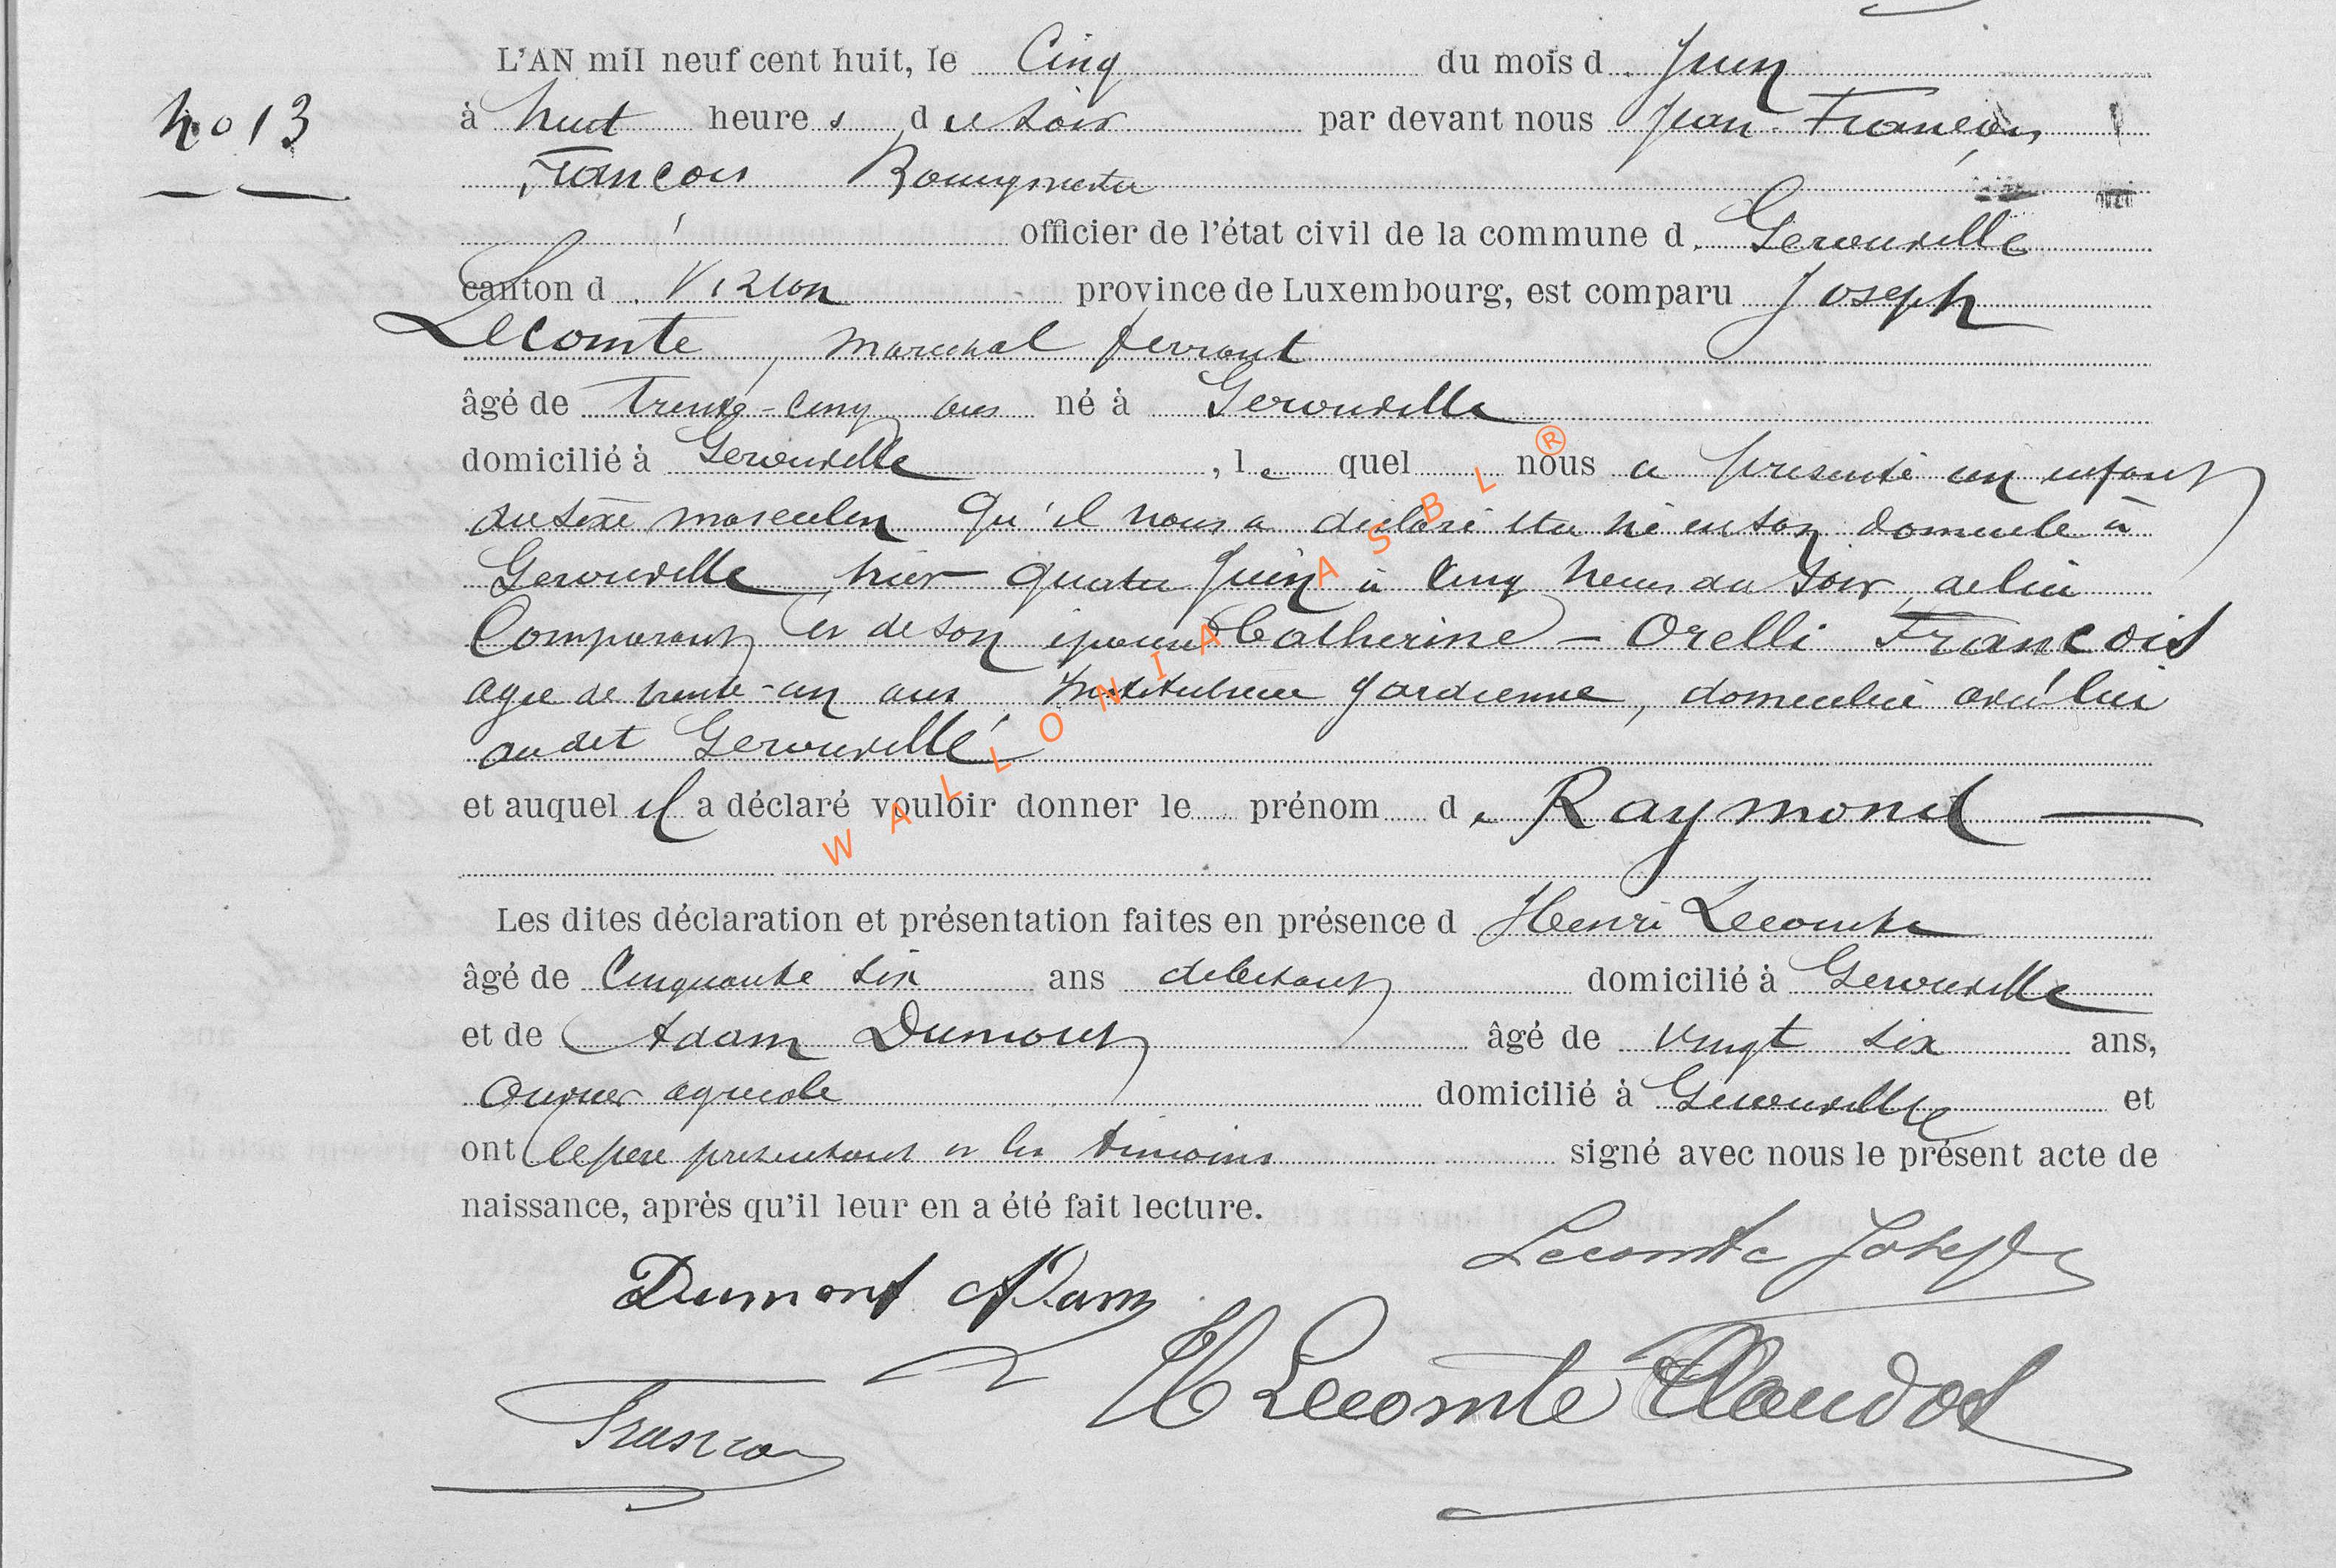 L'AN mil neuf cent huit, le Cinq du mois d. Juin
No 13
à huit heures du soir par devant nous Jean-François
François Bourgmestre
officier de l'état civil de la commune d. Gerouville
canton d. Virton province de Luxembourg, est comparu Joseph
Lecomte, marechal ferrant
âgé de trente-cinq ans né à Gerouville
domicilié à Gerouville, le quel nous a présenté un enfant
du sexe masculin qu'il nous a déclaré être né en son domicile à
Gerouville, hier quatre Juin à cinq heures du soir, de lui
Comparant et de son épouse Catherine-Orelli François
agée de trente-un ans, Institutrice gardienne, domiciliée avec lui
au dit Gerouville
et auquel il a déclaré vouloir donner le prénom de Raymond
Les dites déclaration et présentation faites en présence d Henri Lecomte
âgé de Cinquante six ans debitant domicilié à Gerouville
et de Adam Dumont âgé de vingt six ans,
ouvrier agricole domicilié à Gerouville et
ont le père présentant et les témoins signé avec nous le présent acte de
naissance, après qu'il leur en a été fait lecture.
Lecomte Joseph
Dumont Adam
H Lecomte Claudot
François
WALLONIA ASBL ®